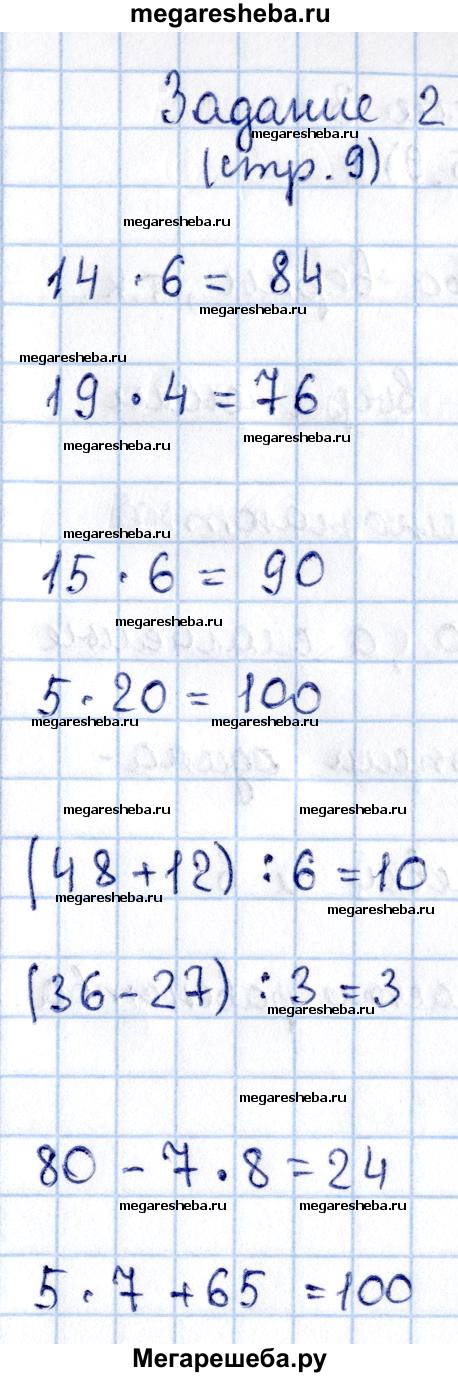 megaresheba.ru
Задание 2
megaresheba.ru
(стр. 9)
megaresheba.ru
14 · 6 = 84
megaresheba.ru
megaresheba.ru
19 · 4 = 76
megaresheba.ru megaresheba.ru
megaresheba.ru
15 · 6 = 90
megaresheba.ru
5 · 20 = 100
megaresheba.ru megaresheba.ru
megaresheba.ru megaresheba.ru
(48 + 12) : 6 = 10
megaresheba.ru megaresheba.ru
(36 - 27) : 3 = 3
megaresheba.ru
megaresheba.ru
80 - 7 · 8 = 24
megaresheba.ru megaresheba.ru
5 · 7 + 65 = 100
Мегарешеба.ру